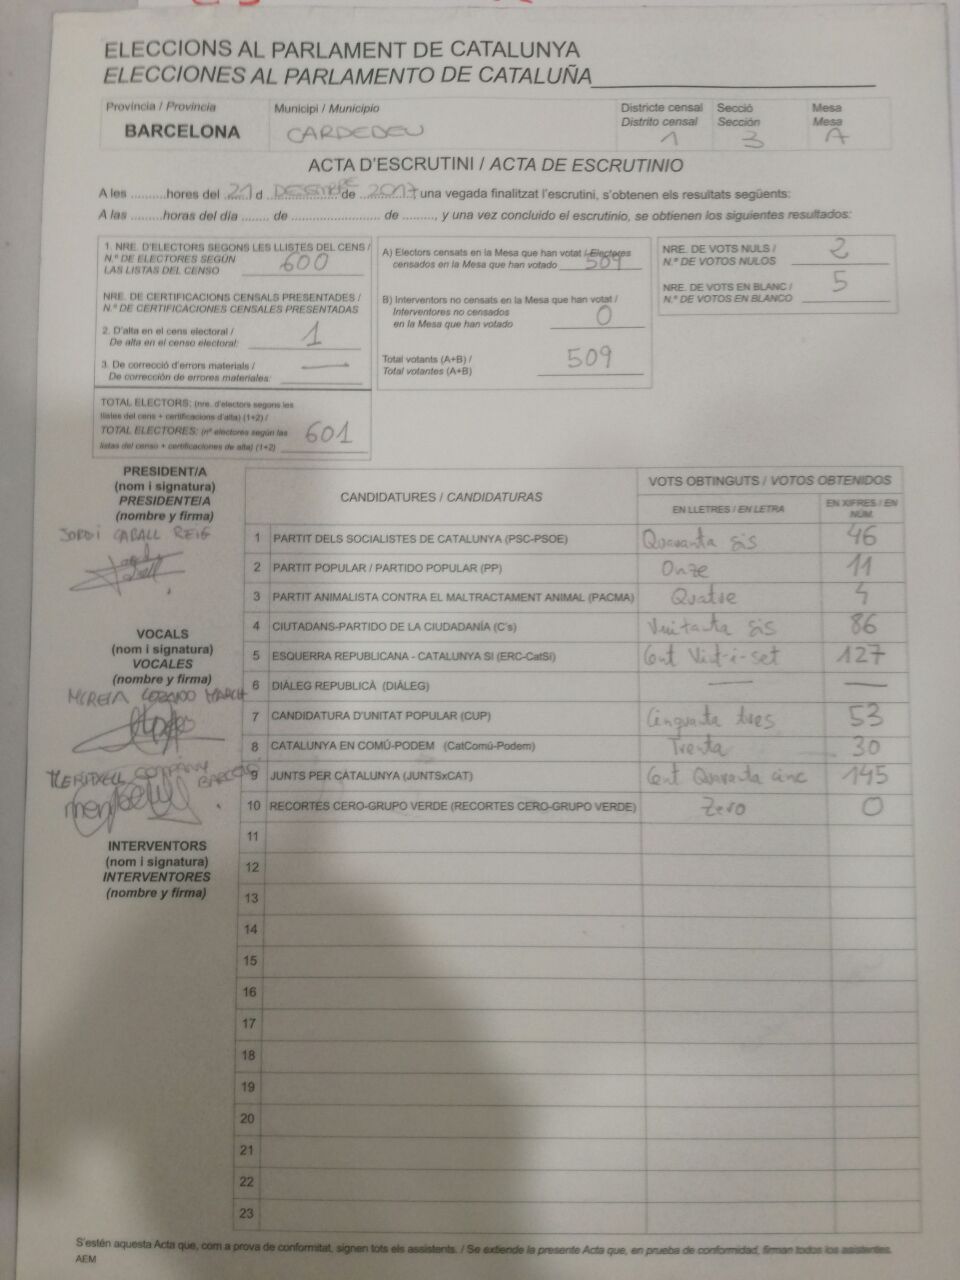 ELECCIONS AL PARLAMENT DE CATALUNYA
ELECCIONES AL PARLAMENTO DE CATALUÑA
Província / Provincia
BARCELONA
Municipi / Municipio
CARDEDEU
Districte censal
Distrito censal
1
Secció
Sección
3
Mesa
Mesa
A
ACTA D'ESCRUTINI / ACTA DE ESCRUTINIO
A les .........hores del 21 d DESEMBRE de 2017, una vegada finalitzat l'escrutini, s'obtenen els resultats següents:
A las ........horas del día ........ de ......................... de ........., y una vez concluido el escrutinio, se obtienen los siguientes resultados:
1. NRE. D'ELECTORS SEGONS LES LLISTES DEL CENS /
N.º DE ELECTORES SEGÚN
LAS LISTAS DEL CENSO
600
NRE. DE CERTIFICACIONS CENSALS PRESENTADES /
N.º DE CERTIFICACIONES CENSALES PRESENTADAS
2. D'alta en el cens electoral /
De alta en el censo electoral:
1
3. De correcció d'errors materials /
De corrección de errores materiales:
—
TOTAL ELECTORS: (nre. d'electors segons les
llistes del cens + certificacions d'alta) (1+2) /
TOTAL ELECTORES: (nº electores según las
listas del censo + certificaciones de alta) (1+2)
601
A) Electors censats en la Mesa que han votat / Electores
censados en la Mesa que han votado 509
B) Interventors no censats en la Mesa que han votat /
Interventores no censados
en la Mesa que han votado
0
Total votants (A+B) /
Total votantes (A+B)
509
NRE. DE VOTS NULS /
N.º DE VOTOS NULOS
2
NRE. DE VOTS EN BLANC /
N.º DE VOTOS EN BLANCO
5
PRESIDENT/A
(nom i signatura)
PRESIDENTE/A
(nombre y firma)
JORDI CABALL REIG
VOCALS
(nom i signatura)
VOCALES
(nombre y firma)
MIREIA LOZANO MARCH
MERITXELL COMPANY
INTERVENTORS
(nom i signatura)
INTERVENTORES
(nombre y firma)
CANDIDATURES / CANDIDATURAS
VOTS OBTINGUTS / VOTOS OBTENIDOS
EN LLETRES / EN LETRA
EN XIFRES / EN NÚM.
1 PARTIT DELS SOCIALISTES DE CATALUNYA (PSC-PSOE) Quaranta sis 46
2 PARTIT POPULAR / PARTIDO POPULAR (PP) Onze 11
3 PARTIT ANIMALISTA CONTRA EL MALTRACTAMENT ANIMAL (PACMA) Quatre 4
4 CIUTADANS-PARTIDO DE LA CIUDADANÍA (C's) Vuitanta sis 86
5 ESQUERRA REPUBLICANA - CATALUNYA SI (ERC-CatSí) Cent Vint-i-set 127
6 DIÀLEG REPUBLICÀ (DIÀLEG) — —
7 CANDIDATURA D'UNITAT POPULAR (CUP) Cinquanta tres 53
8 CATALUNYA EN COMÚ-PODEM (CatComú-Podem) Trenta 30
9 JUNTS PER CATALUNYA (JUNTSxCAT) Cent Quaranta cinc 145
10 RECORTES CERO-GRUPO VERDE (RECORTES CERO-GRUPO VERDE) Zero 0
11
12
13
14
15
16
17
18
19
20
21
22
23
S'estén aquesta Acta que, com a prova de conformitat, signen tots els assistents. / Se extiende la presente Acta que, en prueba de conformidad, firman todos los asistentes.
AEM